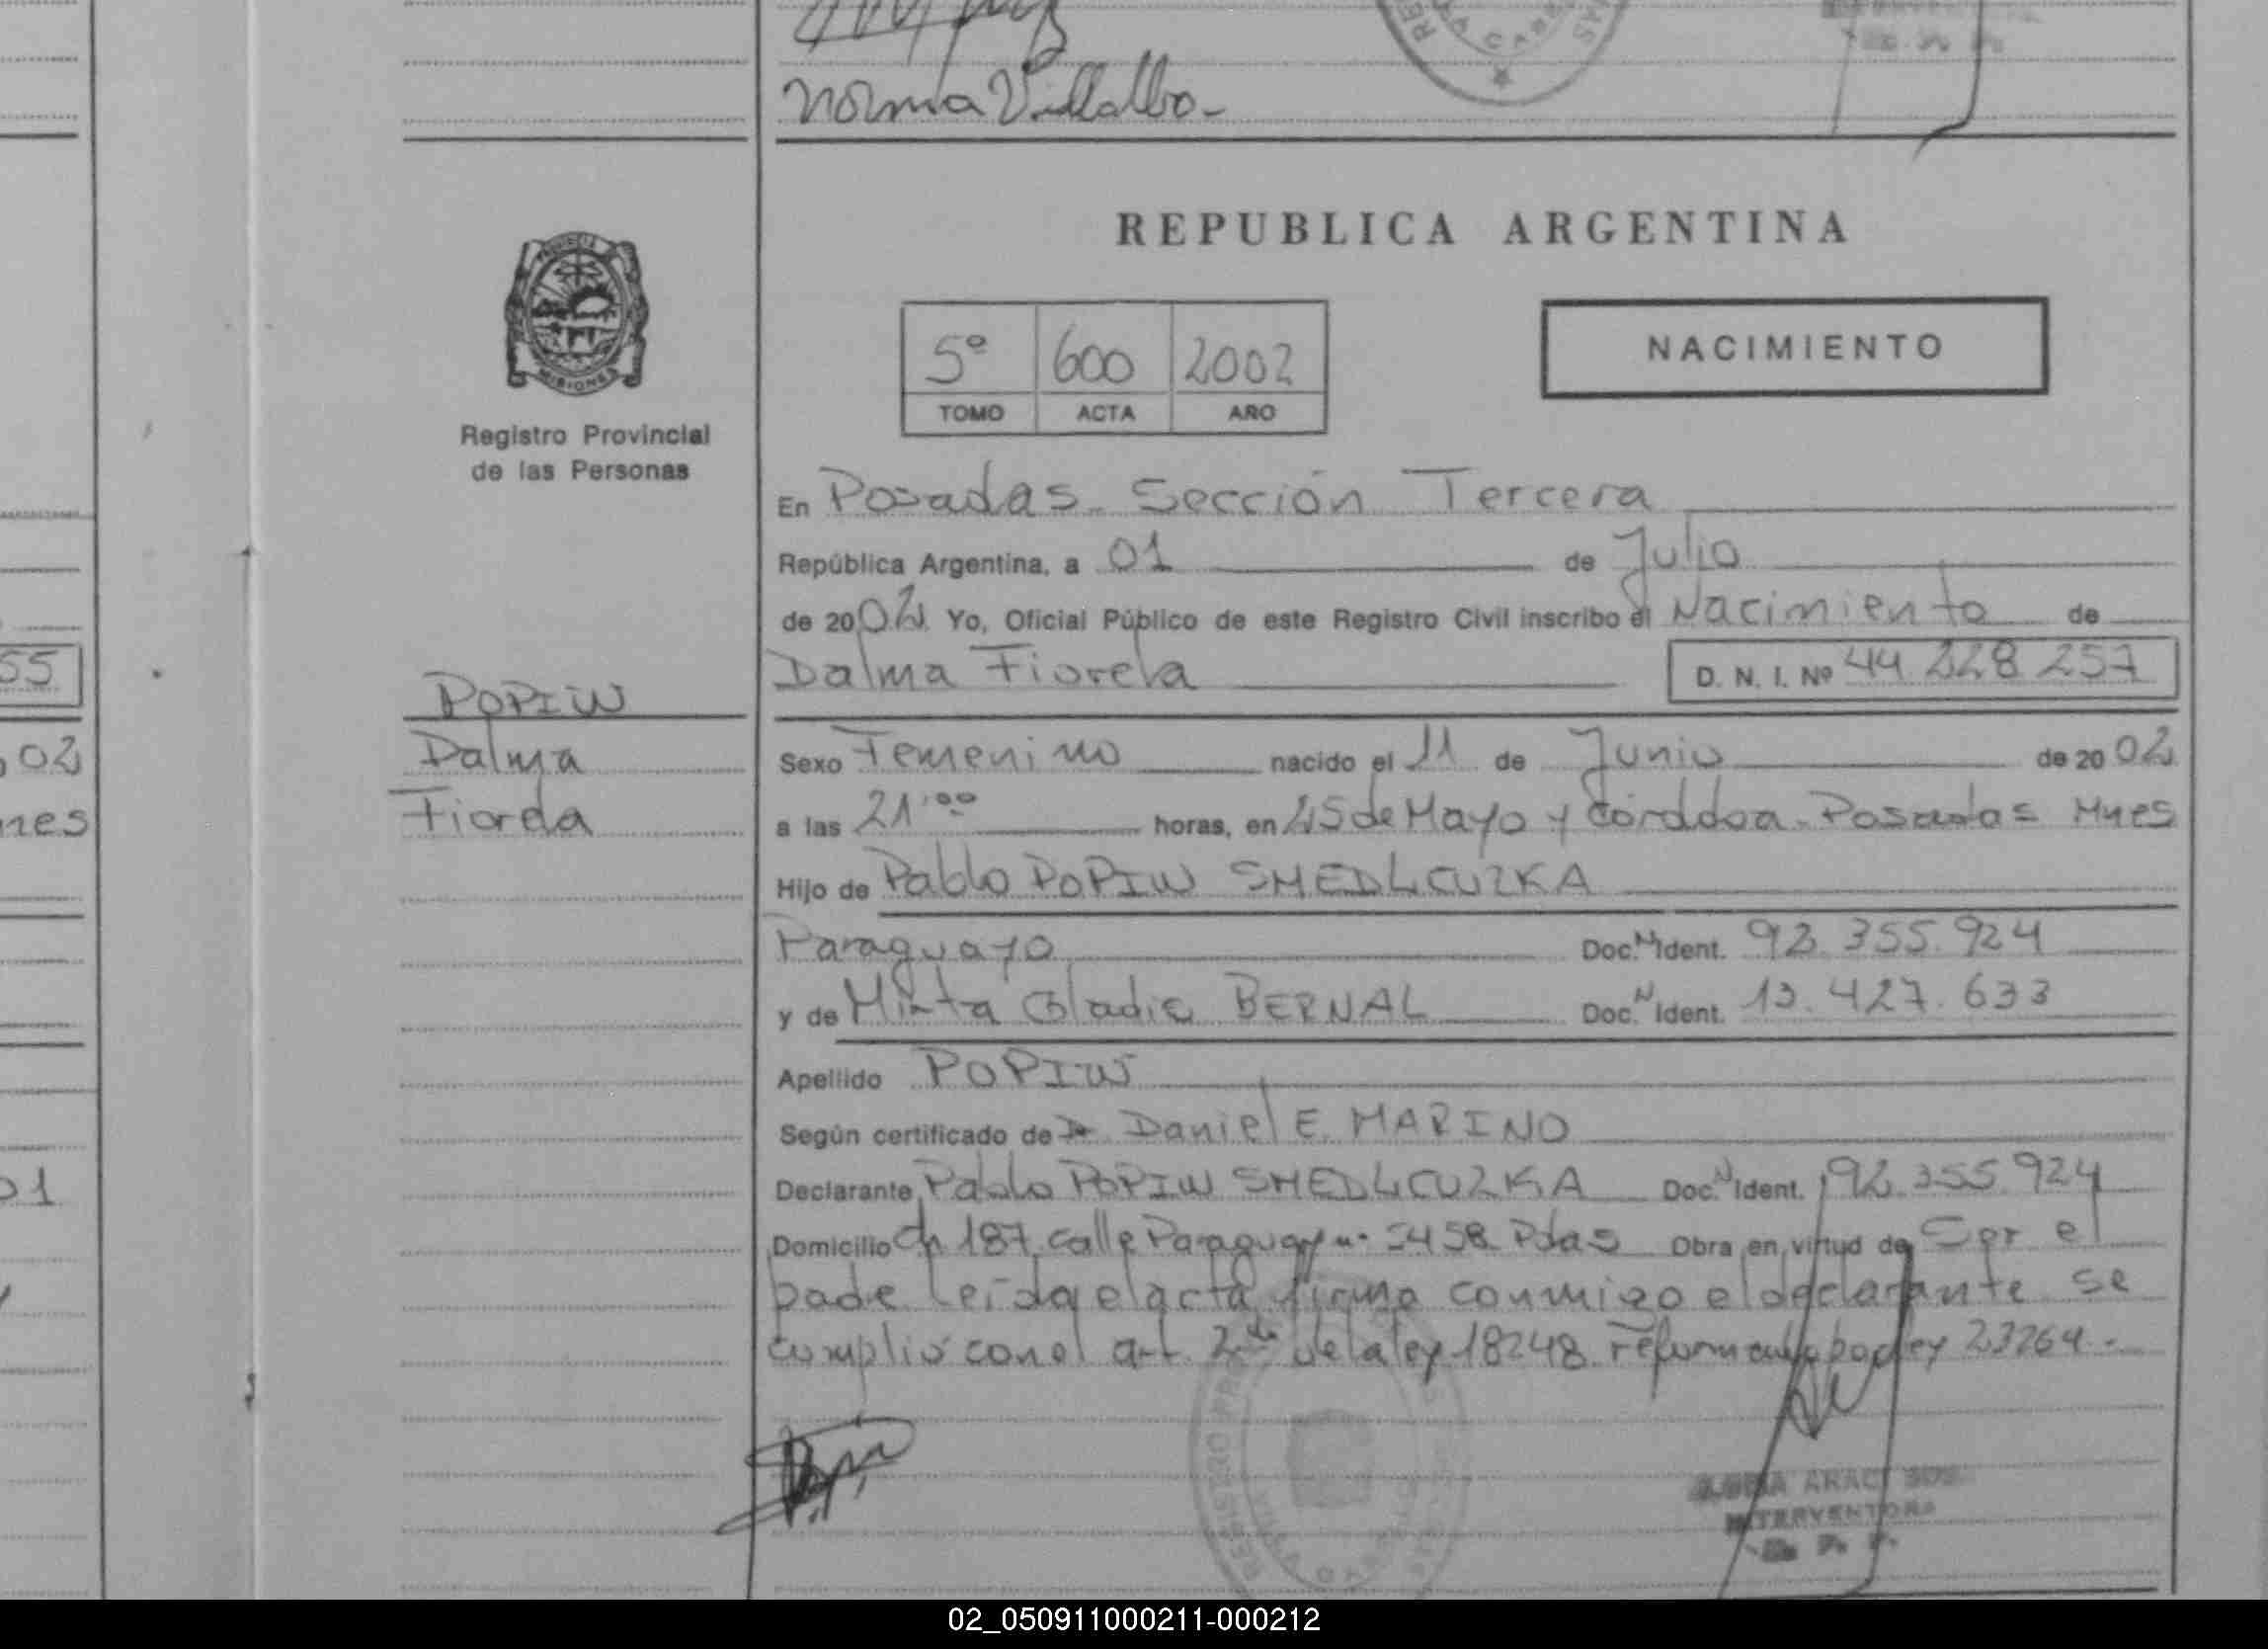 Norma Villalba-
REPUBLICA ARGENTINA
NACIMIENTO
5º 600 2002
TOMO ACTA AÑO
MISIONES
Registro Provincial
de las Personas
En Posadas. Sección Tercera
República Argentina, a 01 de Julio
de 2002 Yo, Oficial Público de este Registro Civil inscribo el Nacimiento de
Dalma Fiorela D. N. I. Nº 44 228 257
55
POPIW
Dalma
Fiorela
02
nes
01
Sexo Femenino nacido el 11 de Junio de 2002
a las 21'00 horas, en 25 de Mayo y Córddoa. Posadas Mnes
Hijo de Pablo POPIW SMEDLCUZKA
Paraguayo Doc. N Ident. 92.355.924
y de Mirta Gladis BERNAL Doc. N Ident. 13.427.633
Apellido POPIW
Según certificado de Dr. Daniel E. MARINO
Declarante Pablo POPIW SMEDLCUZKA Doc. N Ident. 92.355.924
Domicilio Ch 187 calle Paraguay nº 5458 Pdas Obra en virtud de Ser el
padre Leída el acta firma conmigo el declarante se
cumplió con el art. 2do de la ley 18248 reformado por ley 23264.-
INTERVENTORA
02_050911000211-000212